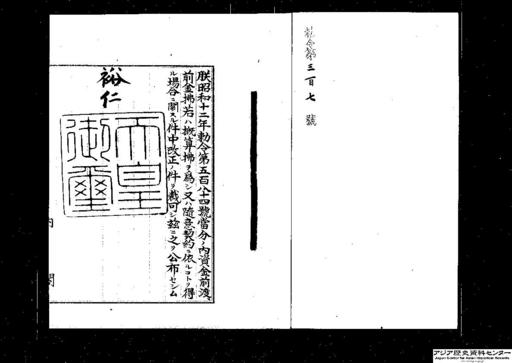 勅令第三百七號
朕昭和十二年勅令第五百八十四號當分ノ內資金前渡
前金拂若ハ概算拂ヲ爲シ又ハ隨意契約ニ依ルコトヲ得
ル場合ニ關スル件中改正ノ件ヲ裁可シ玆ニ之ヲ公布セシム
裕仁
天皇御璽
內閣
アジア歴史資料センター
Japan Center for Asian Historical Records